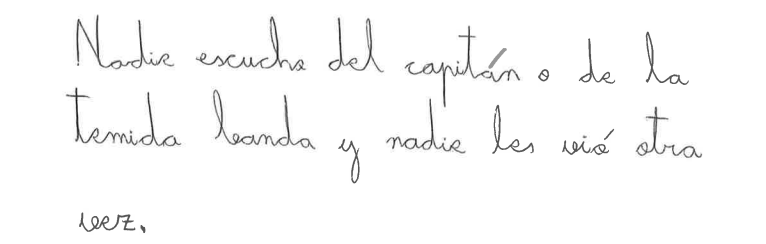 Nadie escucho del capitán o de la
temida banda y nadie les vió otra
vez.